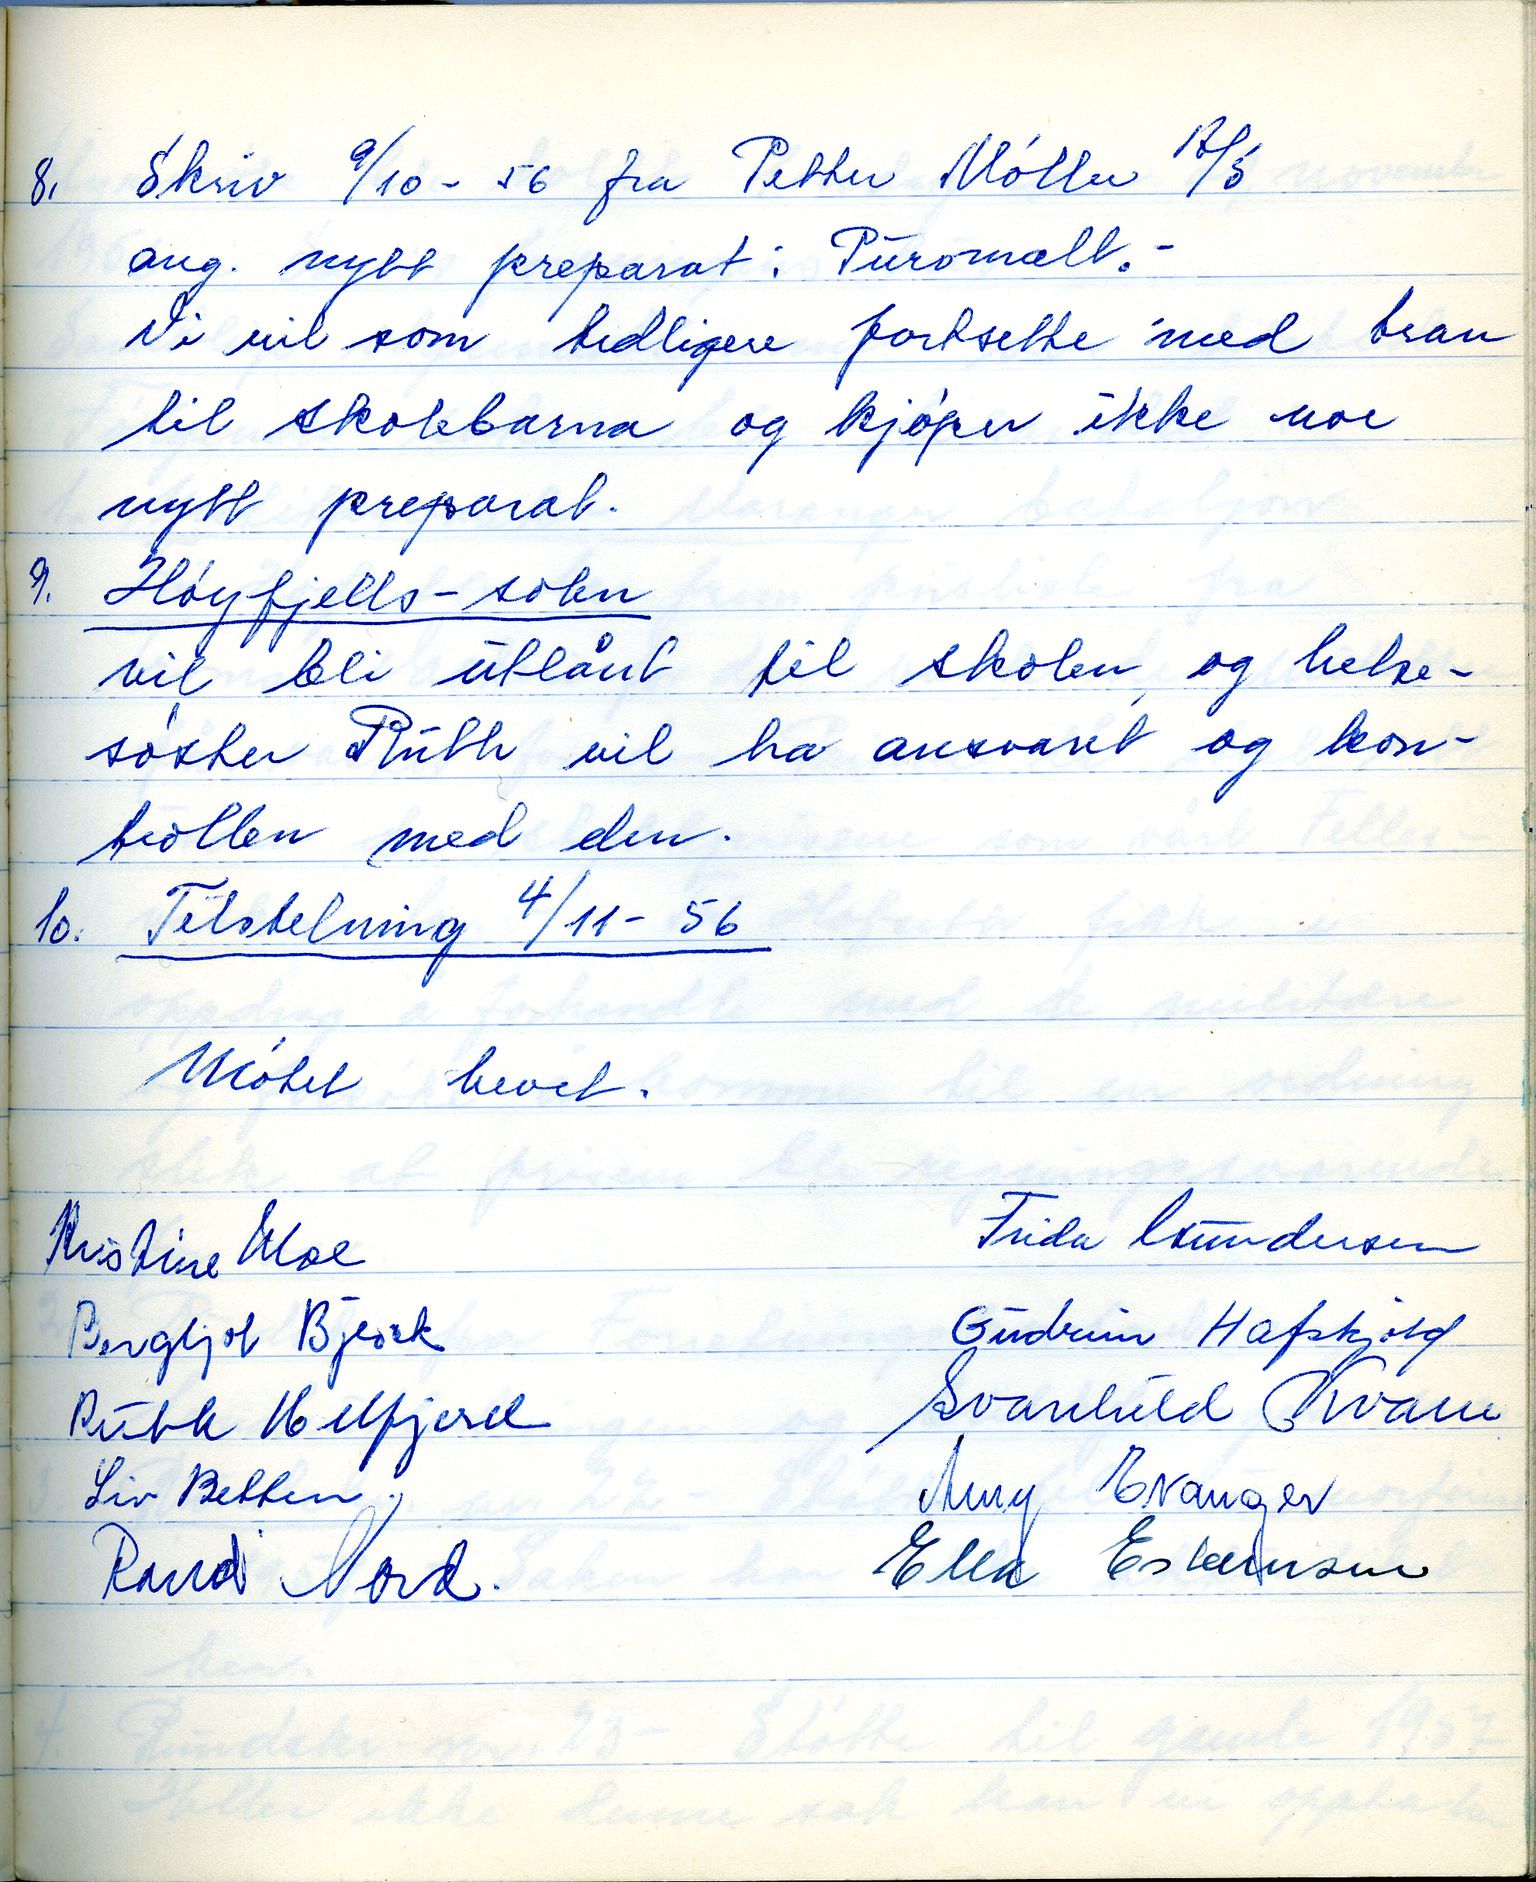 8. Skriv 9/10 - 56 fra Petter Möller A/S
ang. nytt preparat: Puromalt.-
Vi vil som tidligere fortsette med tran
til skolebarna og kjöper ikke noe
nytt preparat.
9. Höyfjells-solen
vil bli utlånt til skolen, og helse-
söster Ruth vil ha ansvaret og kon-
trollen med den.
10. Tilstelning 4/11 - 56
Mötet hevet.
Kristine Moe
Frida Gundersen
Bergljot Bjerck
Gudrun Hafskjold
Ruth
Svanhild Kvam
Liv Betten.
Amy Evanger
Randi Nord.
Ella